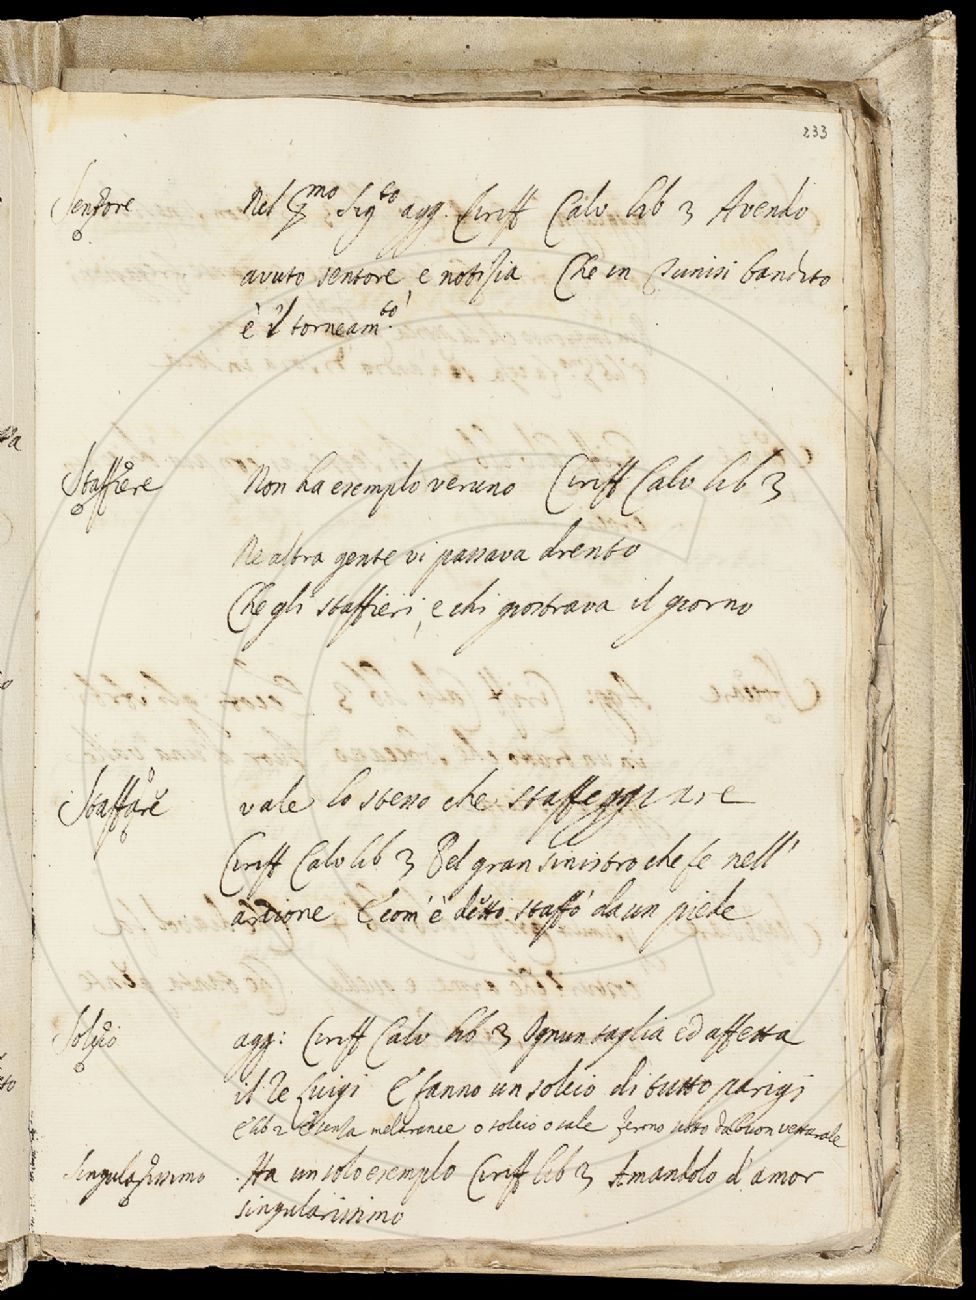 233
Sentore Nel Pmo Sigto agg. Ciriff Calv lib 3 Avendo
avuto sentore e notizia Che in Tunisi bandito
è il torneamto
Staffiere Non ha esemplo veruno Ciriff Calv lib 3
Ne altra gente vi passava drento
Che gli staffieri, e chi giostrava il giorno
Staffare vale lo stesso che staffeggiare
Ciriff Calv lib 3 Pel gran sinistro che fe nell'
arcione E com' è detto staffò da un piede
Solcio agg: Ciriff Calv lib 3 Ognun taglia ed affetta
il Re Luigi E fanno un solcio di tutto parigi
E lib 2 E senza melarance o solcio o sale
Singularissimo Ha un solo esemplo Ciriff lib 3 Amandolo d'amor
singularissimo